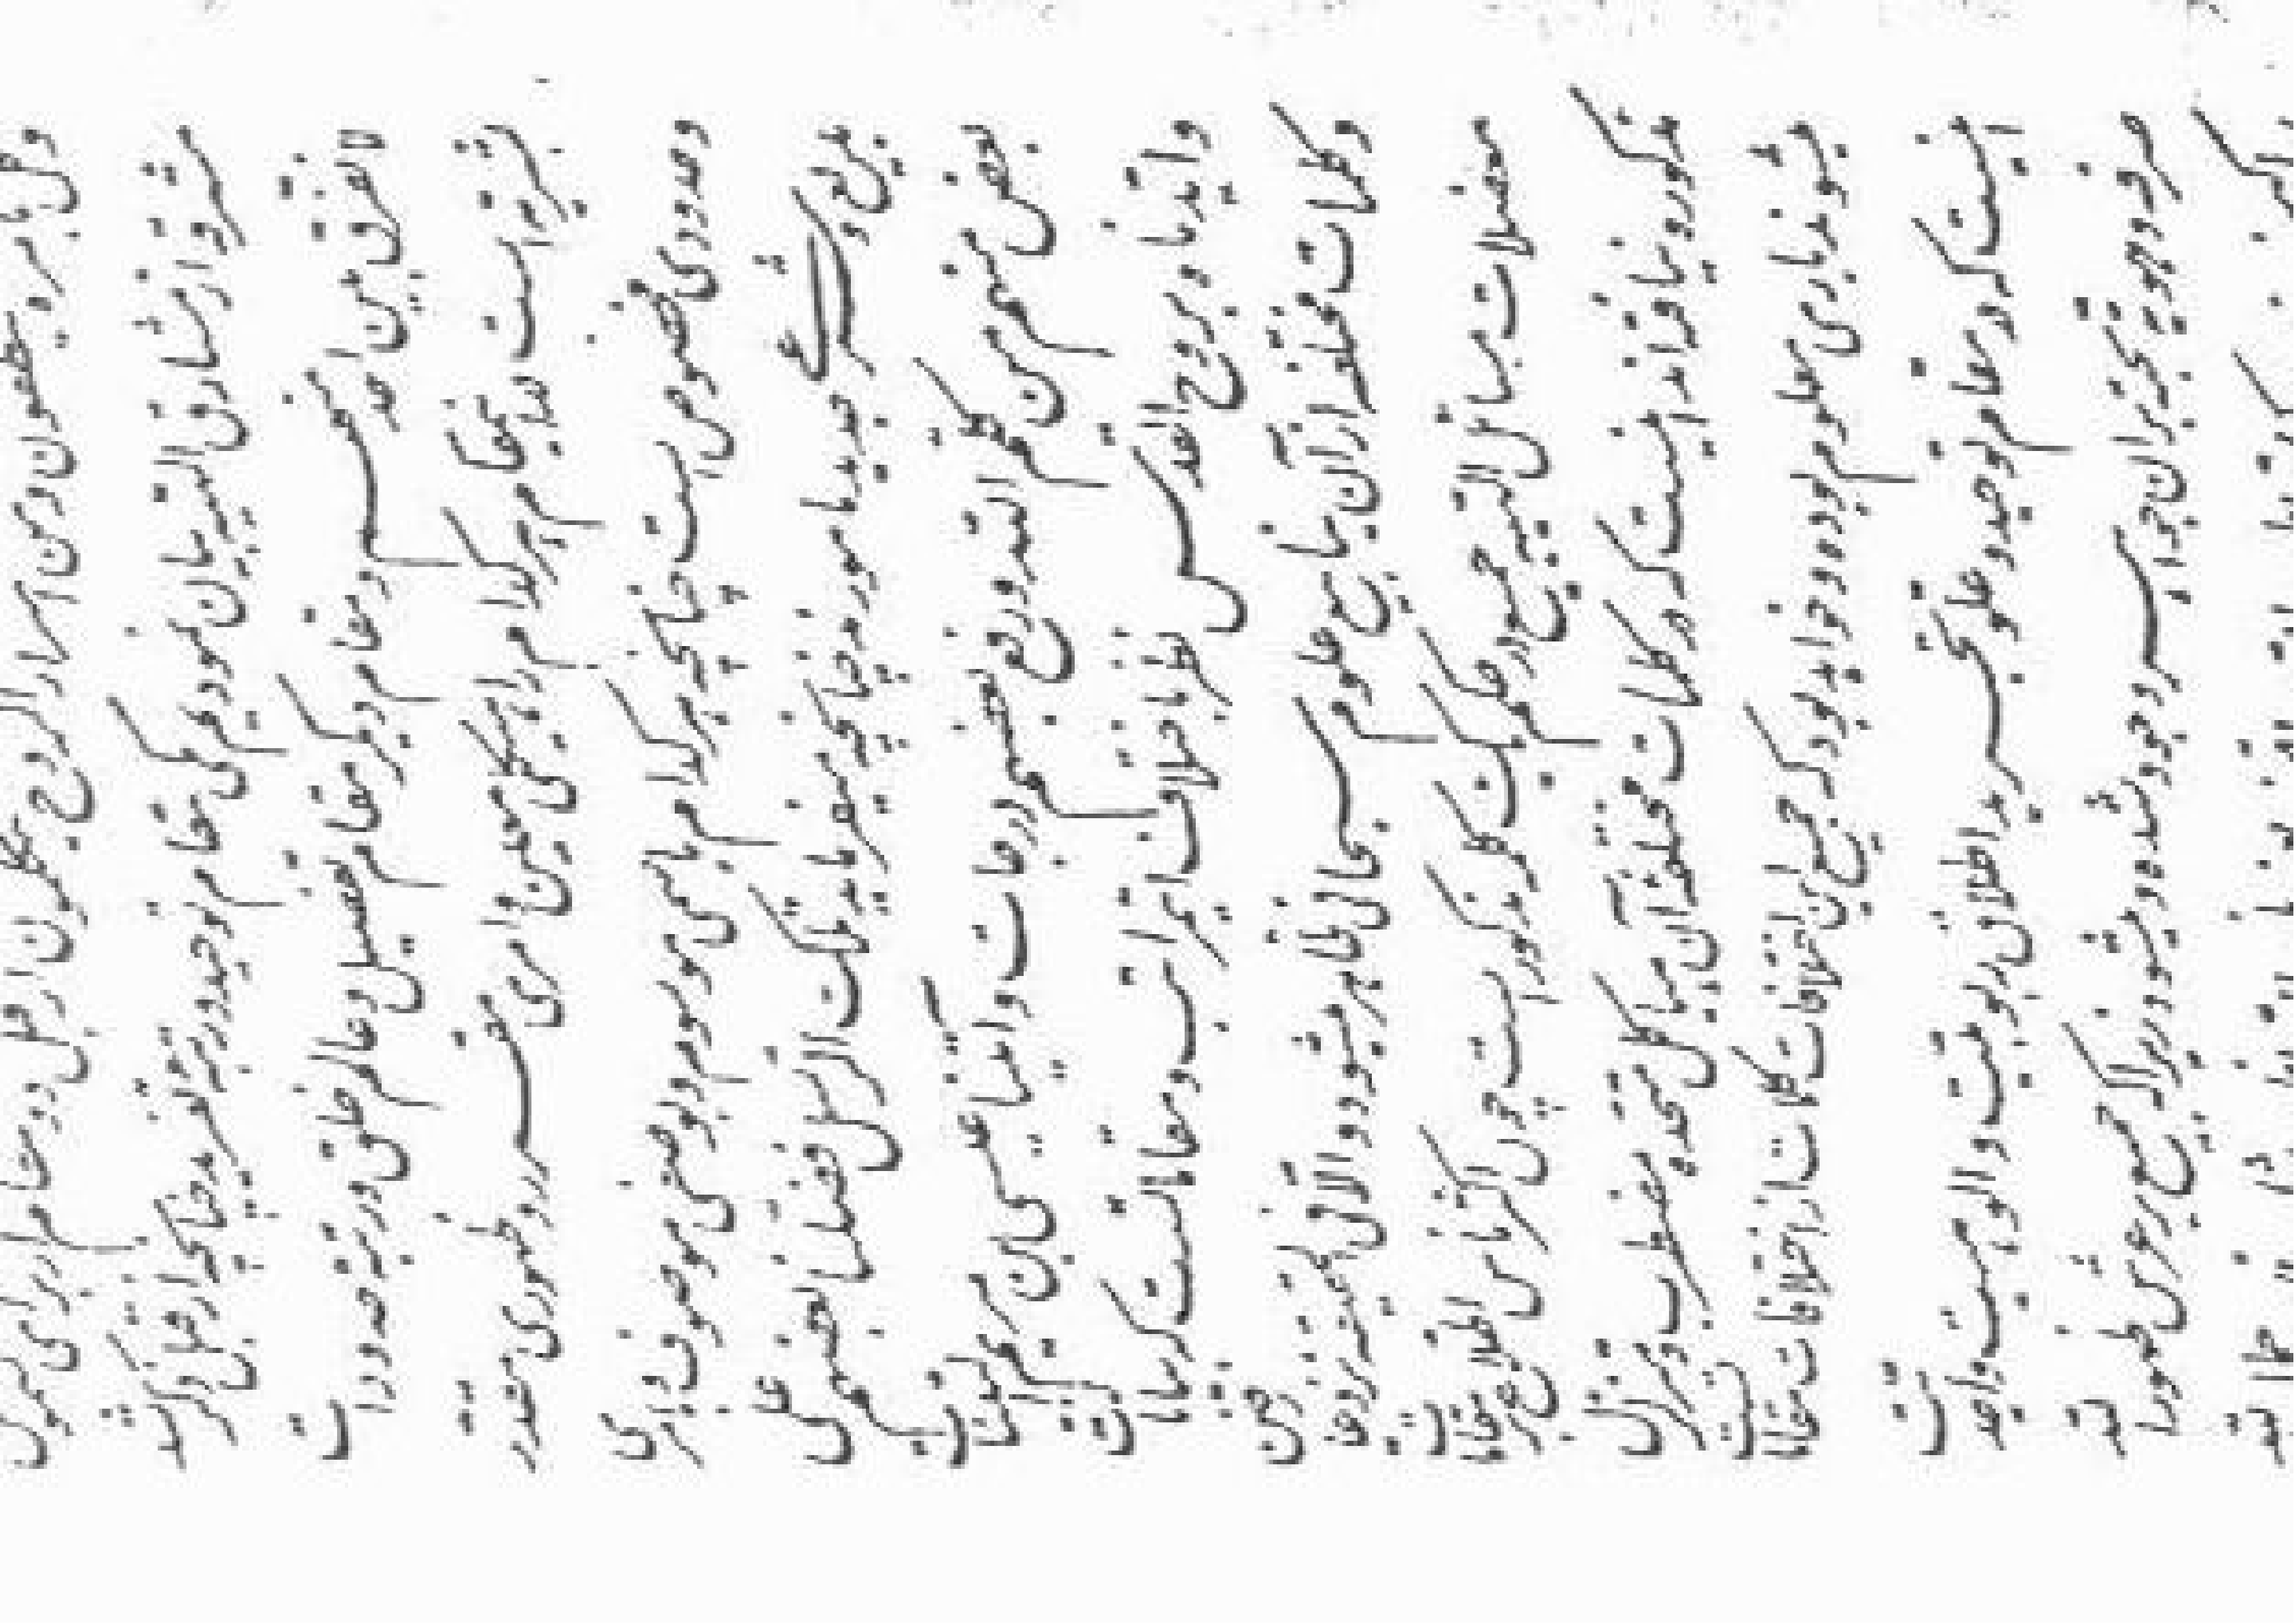 بامره یحضرون و من اسرار الروح از قبل دو مقام از برای شموس
مشرقه از مشارق الهیه بیان نمودیم یکی مقام توحید و رتبه تفرید چنانچه از قبل ذکر شد
لا نفرق بین احد منهم و مقام دیگر مقام تفصیل و عالم خلق و رتبه حدودات
بشریه است در این مقام هر کدام را هیکلی معین و امری مقرر و ظهوری مقدر
و حدودی مخصوص است چنانچه هر کدام باسمی موسوم و بوصفی موصوف و بامری
بدیع و شرعی جدید مامورند چنانچه میفرماید تلک الرسل فضلنا بعضهم علی
بعض منهم من کلم الله و رفع بعضهم درجات و آتینا عیسی بن مریم البینات
و ایدناه بروح القدس نظر باختلاف این مراتب و مقامات است که بیانات
و کلمات مختلفه از آن ینابیع علوم سبحانی ظاهر میشود و الا فی الحقیقه نزد عارفین
معضلات مسائل الهیه جمیع در حکم یک کلمه مذکور است چون اکثر ناس اطلاع بر مقامات
مذکوره نیافته‌اند اینست که در کلمات مختلفه آن هیاکل متحده مضطرب و متزلزل
میشوند باری معلوم بوده و خواهد بود که جمیع این اختلافات کلمات از اختلافات مقاماتست
اینست که در مقام توحید و علو تجرید اطلاق ربوبیت و الوهیت و احدیت
صرفه و هویه بحته بر آن جواهر وجود شده و میشود زیرا که جمیع بر عرش ظهور الله